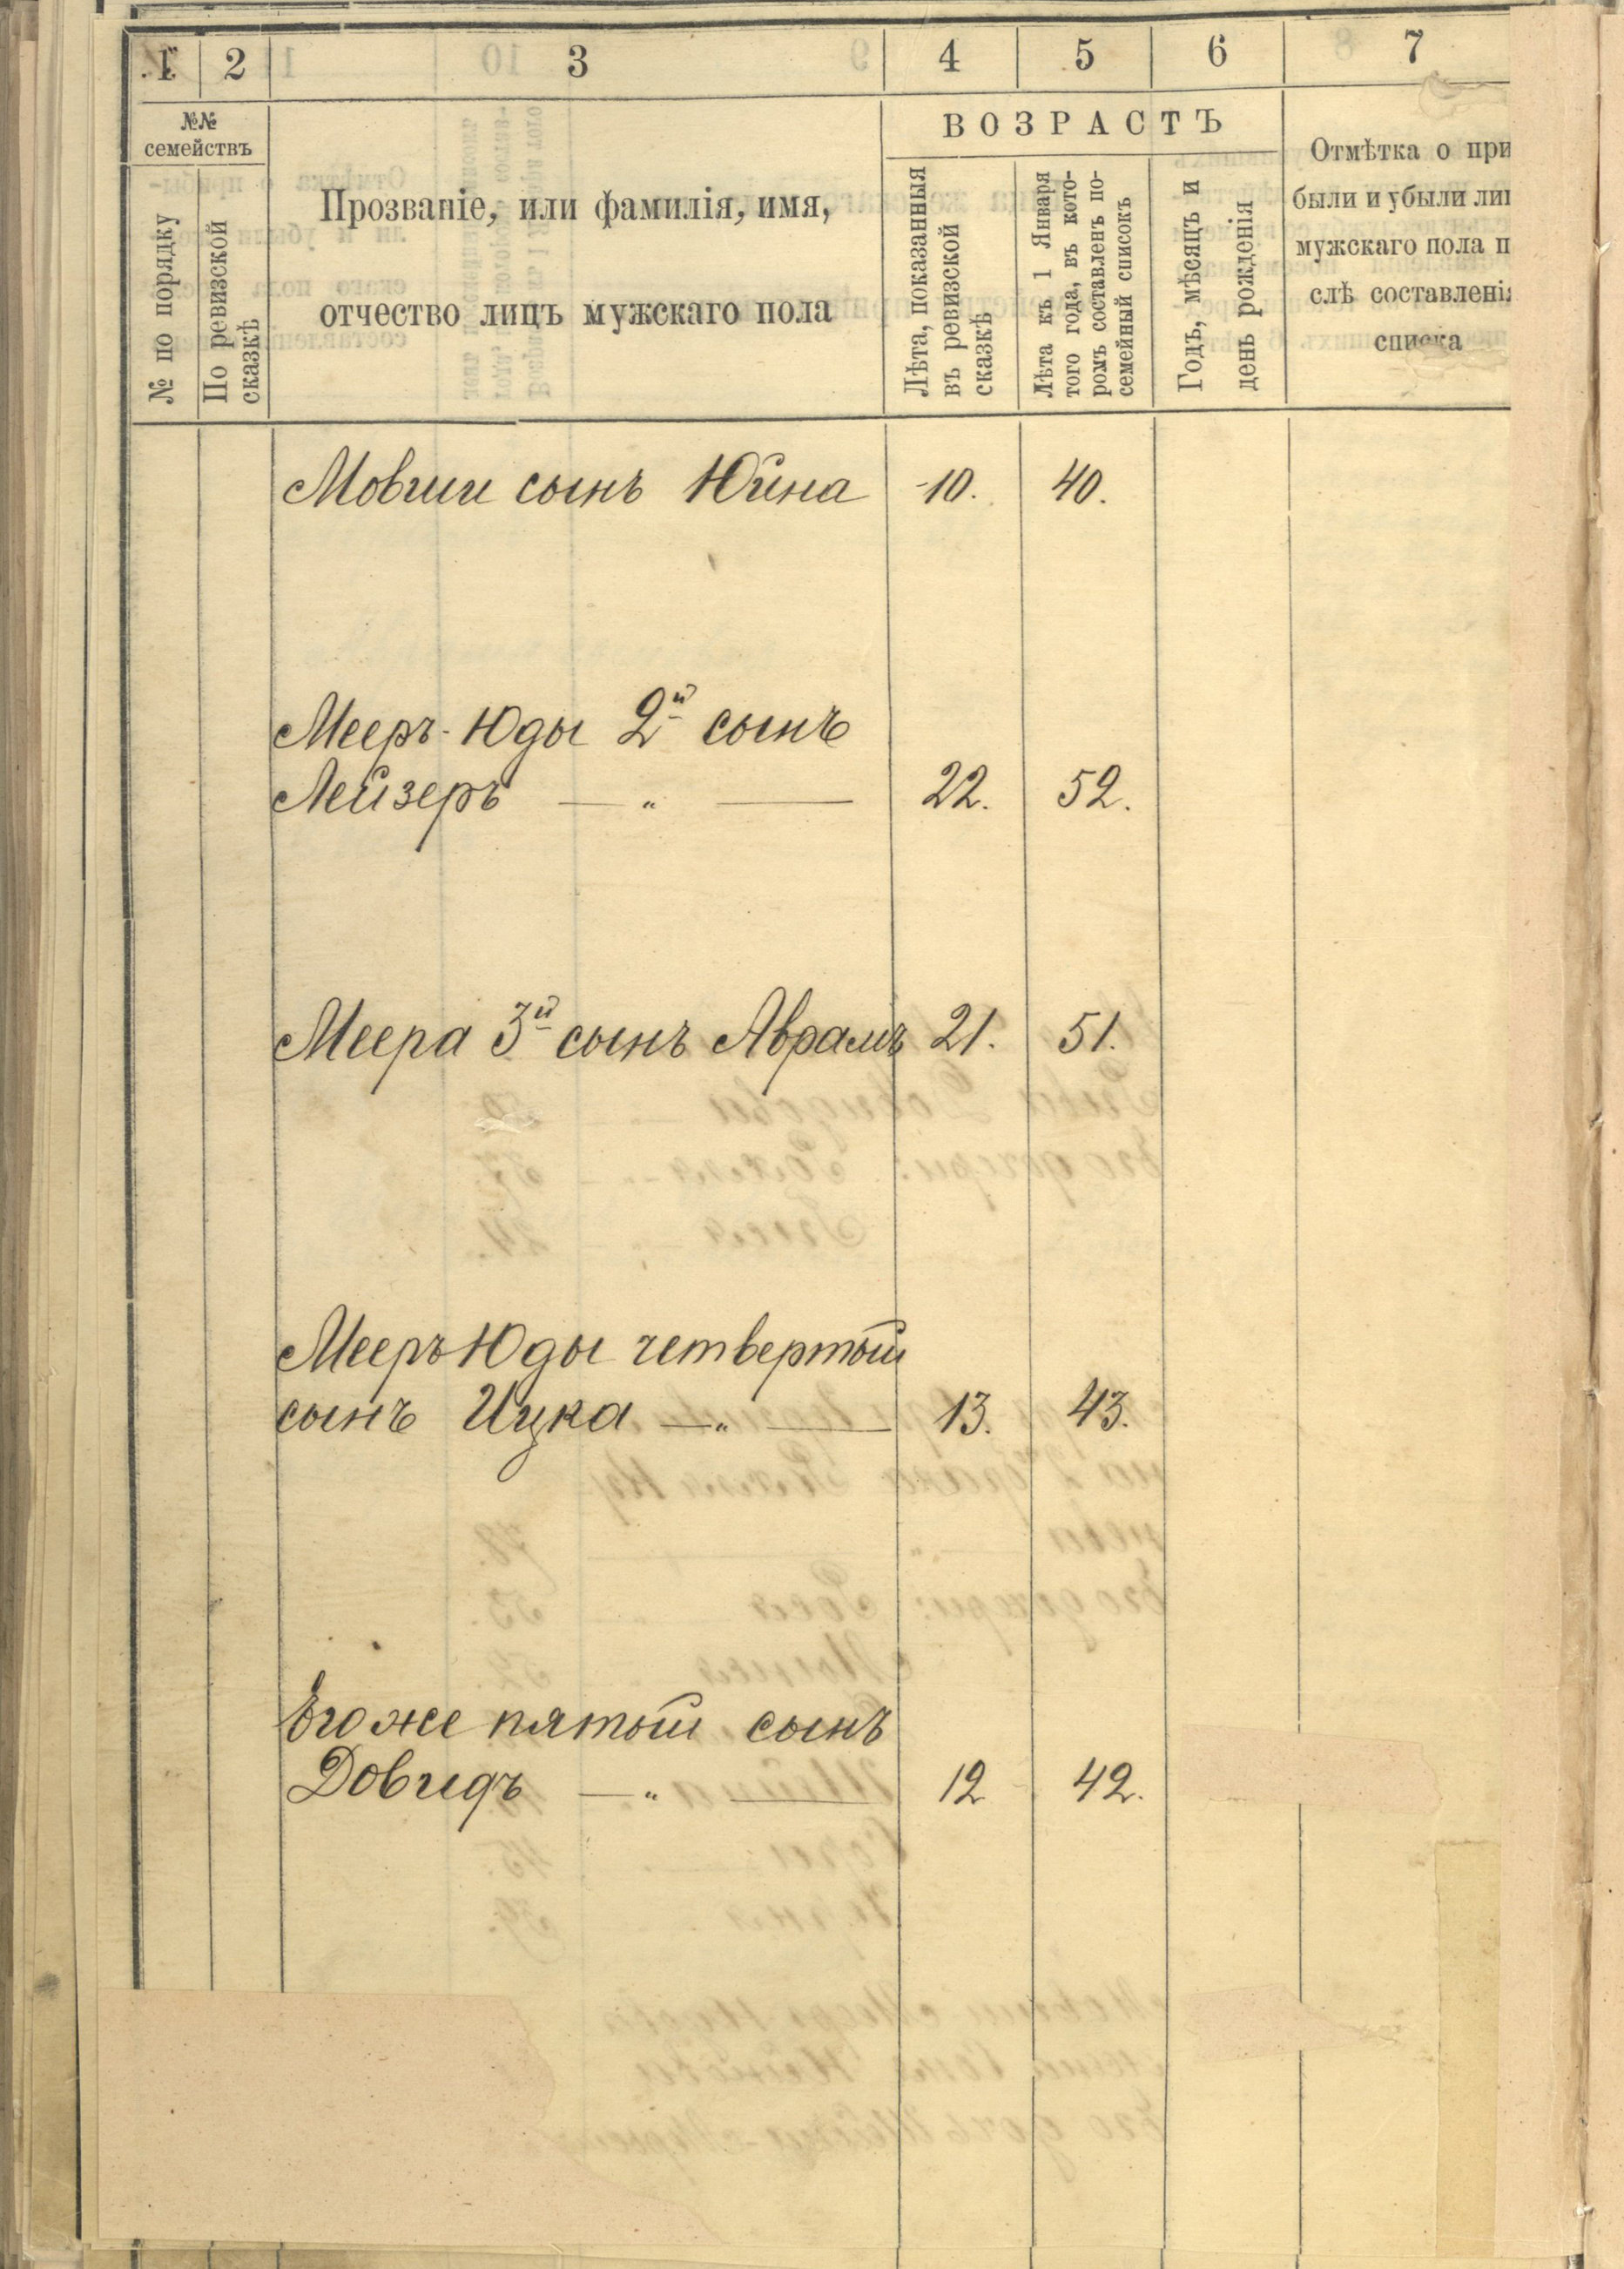 1 2 3 4 5 6 7
№№
семействъ
№ по порядку
По ревизской
сказкѣ
Прозваніе, или фамилія, имя,
отчество лицъ мужскаго пола
ВОЗРАСТЪ
Лѣта, показанныя
въ ревизской
сказкѣ
Лѣта къ 1 Января
того года, въ кото-
ромъ составленъ по-
семейный списокъ
Годъ, мѣсяцъ и
день рожденія
Отмѣтка о при
были и убыли ли
мужскаго пола п
слѣ составлені
списка
Мовши сынъ Юйна 10. 40.
Мееръ-Юды 2й сынъ
Лейзеръ — " — 22. 52.
Меера 3й сынъ Аврамъ 21. 51.
Мееръ Юды четвертый
сынъ Ицка — " — 13. 43.
Его же пятый сынъ
Довидъ — " — 12 42.